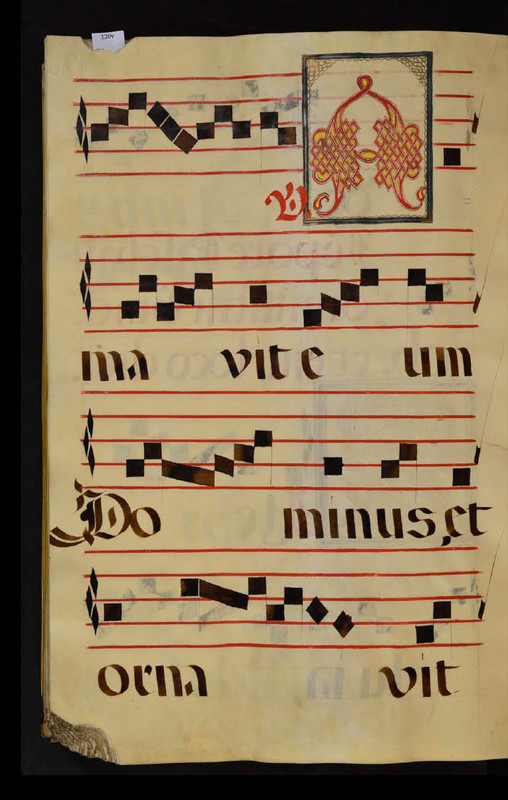 1204
V A
ma vit e um
Do minus, et
orna vit